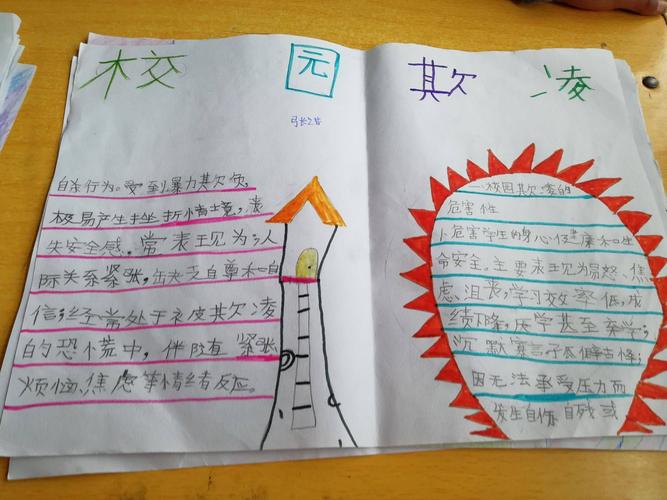 校园欺凌
自杀行为。受到暴力欺负,
极易产生挫折情境,丧
失安全感。常表现为:人
际关系紧张,缺乏自尊和自
信;经常处于被欺凌
的恐慌中,伴随紧张
烦恼、焦虑等情绪反应。
一校园欺凌的
危害性
1、危害学生的身心健康和生
命安全。主要表现为易怒、焦
虑、沮丧,学习效率低,成
绩下降,厌学甚至弃学;
沉默寡言、孤僻古怪;
因无法承受压力而
发生自伤自残或